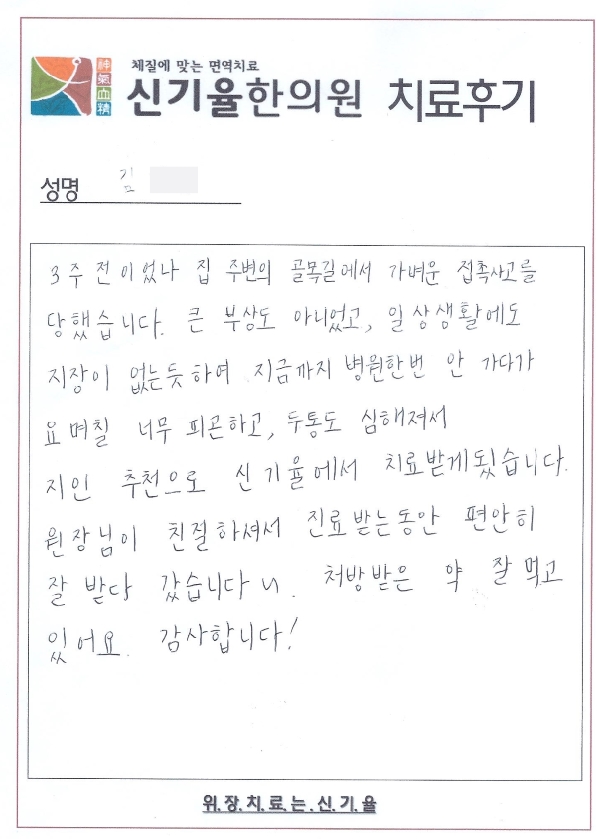 체질에 맞는 면역치료
神氣血精
신기율한의원 치료후기
성명 김
3주 전이었나 집 주변의 골목길에서 가벼운 접촉사고를
당했습니다. 큰 부상도 아니었고, 일상생활에도
지장이 없는듯하여 지금까지 병원한번 안 가다가
요며칠 너무 피곤하고, 두통도 심해져서
지인 추천으로 신기율에서 치료받게됬습니다.
원장님이 친절하셔서 진료받는동안 편안히
잘 받다 갔습니다 ~. 처방받은 약 잘 먹고
있어요. 감사합니다!
위.장.치.료.는.신.기.율